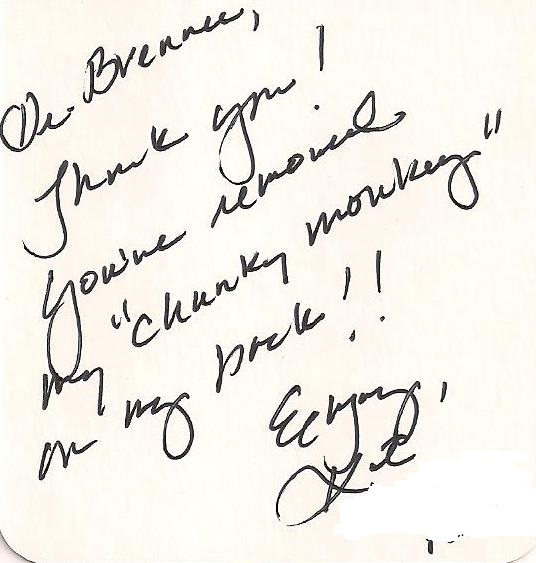 Dr. Brenner,
Thank you!
You've removed
my "chunky monkey"
on my back!!
Enjoy,
Kat